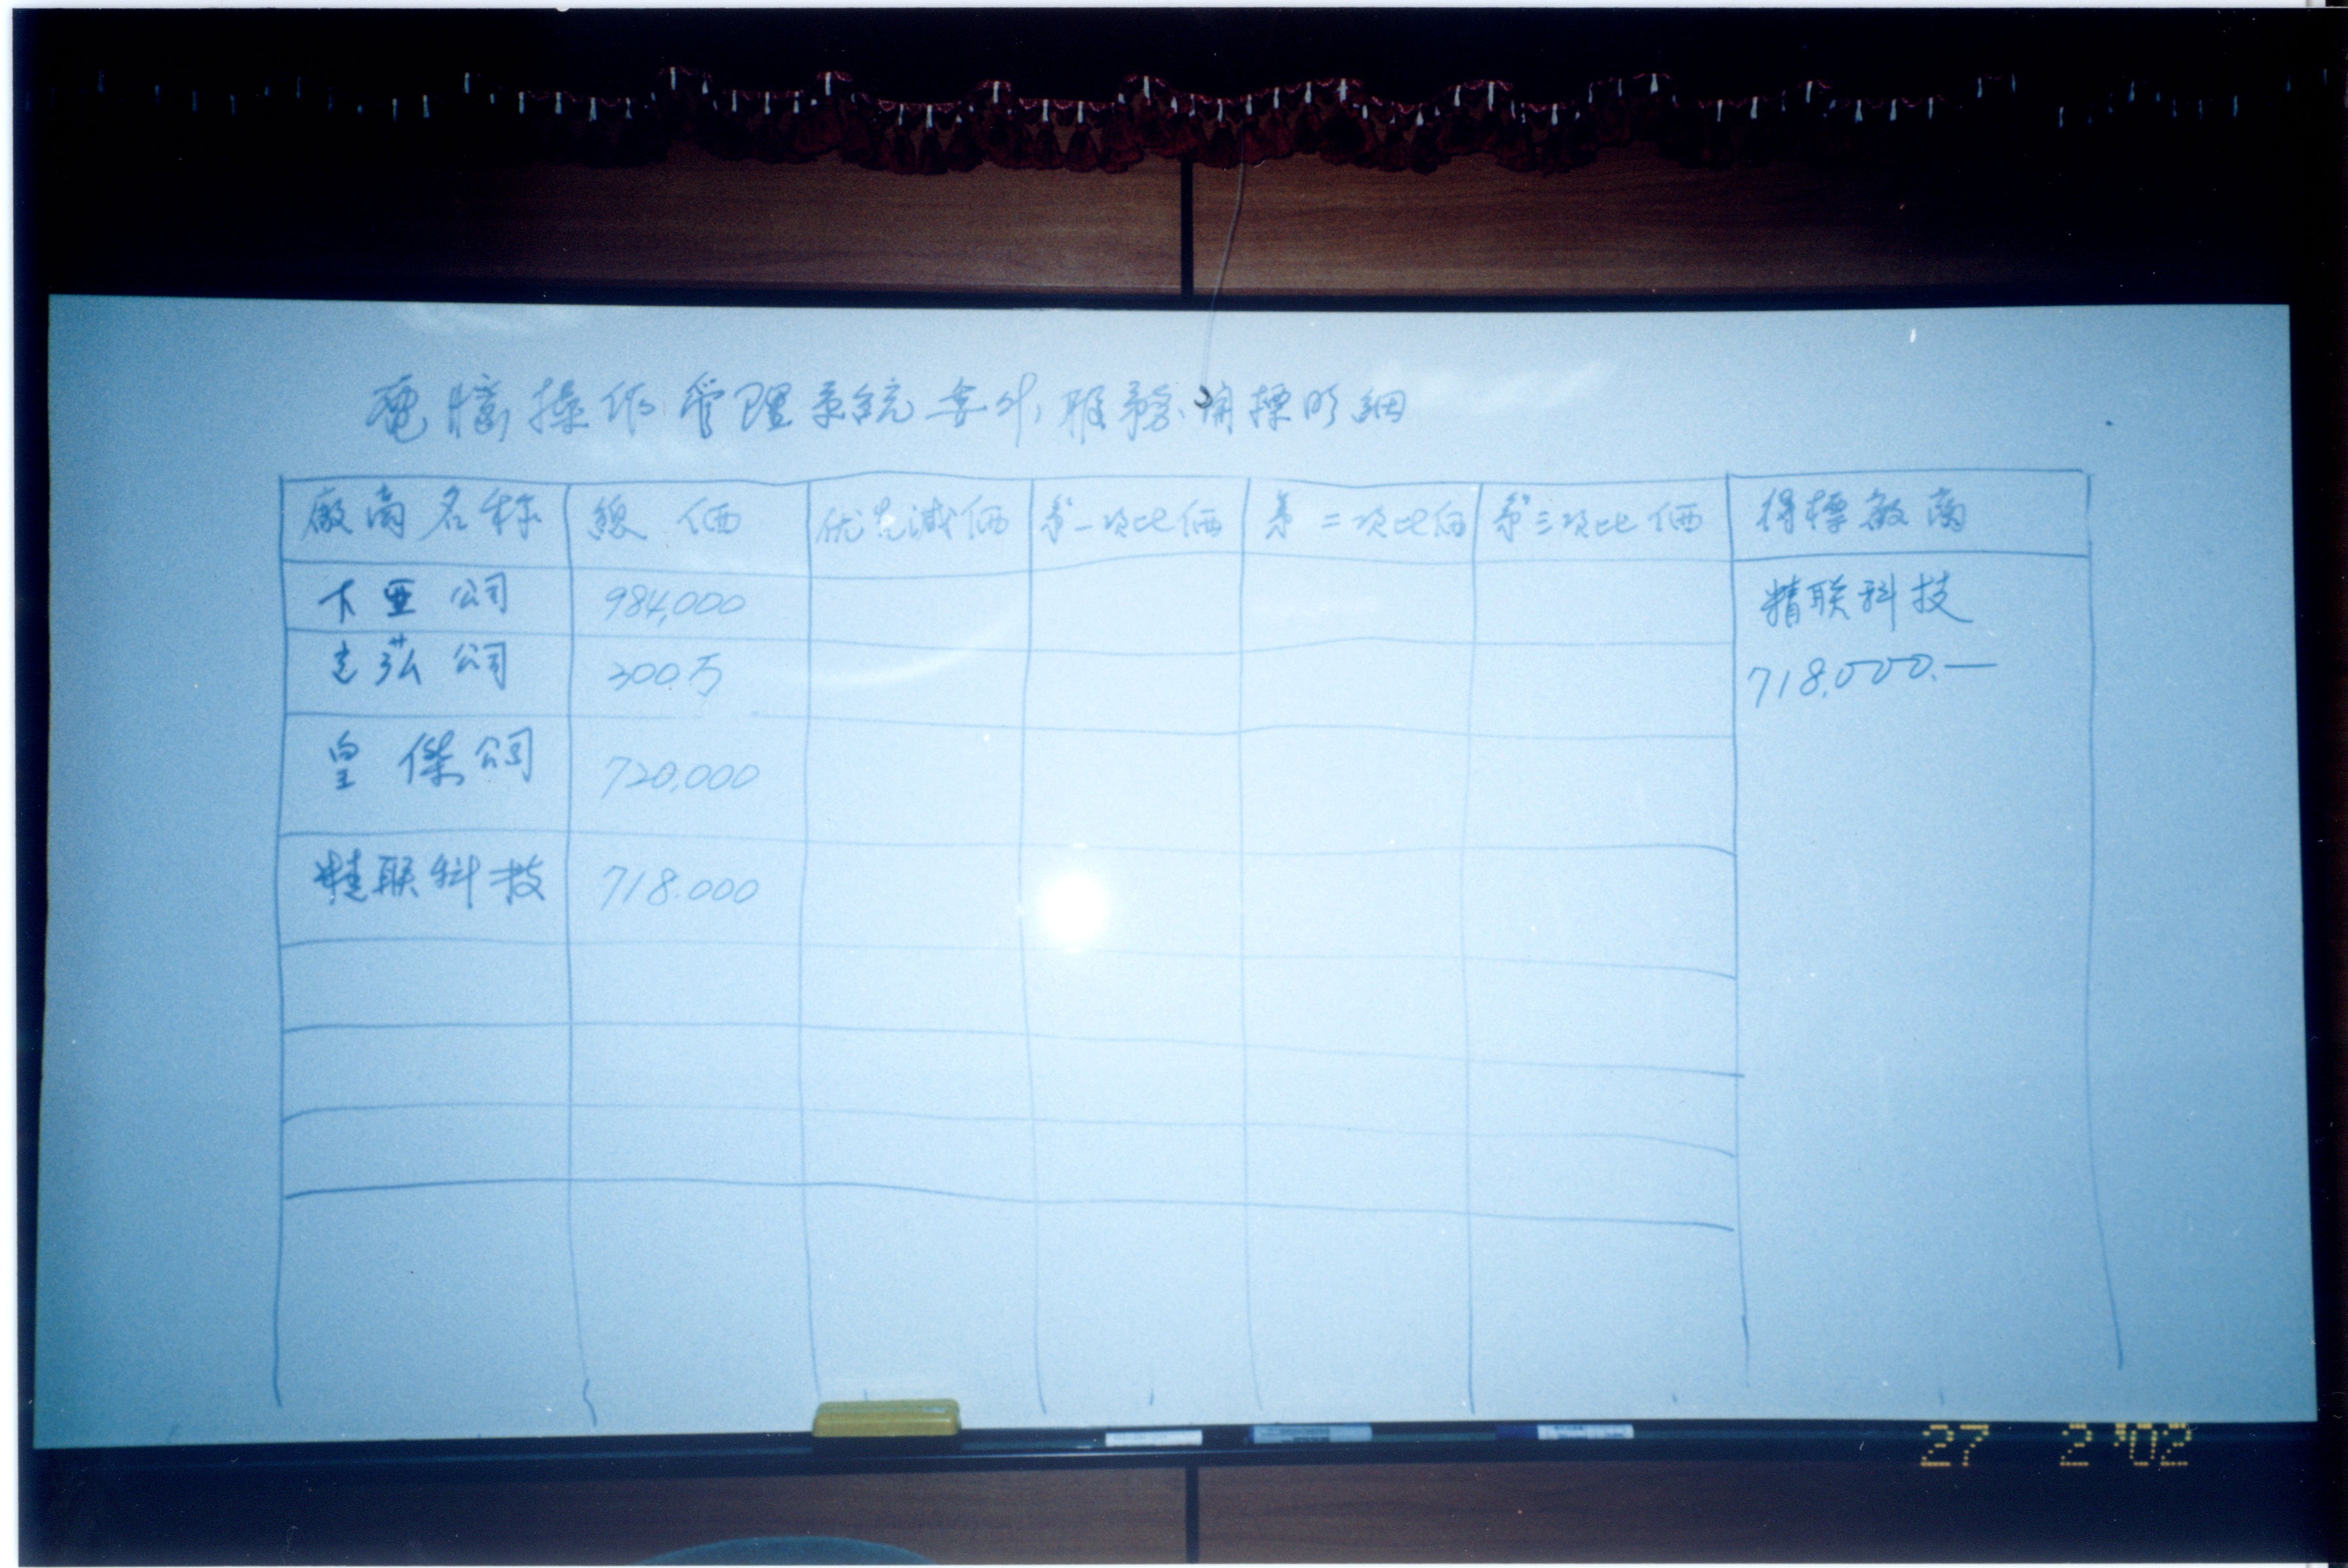 電腦操作管理系統委外服務開標明細
廠商名称 總価 优先減価 第一次比価 第二次比価 第三次比価 得標廠商
卡亜公司 984,000 精联科技
志弘公司 300万 718,000.—
皇傑公司 720,000
精联科技 718.000
27 2 '02